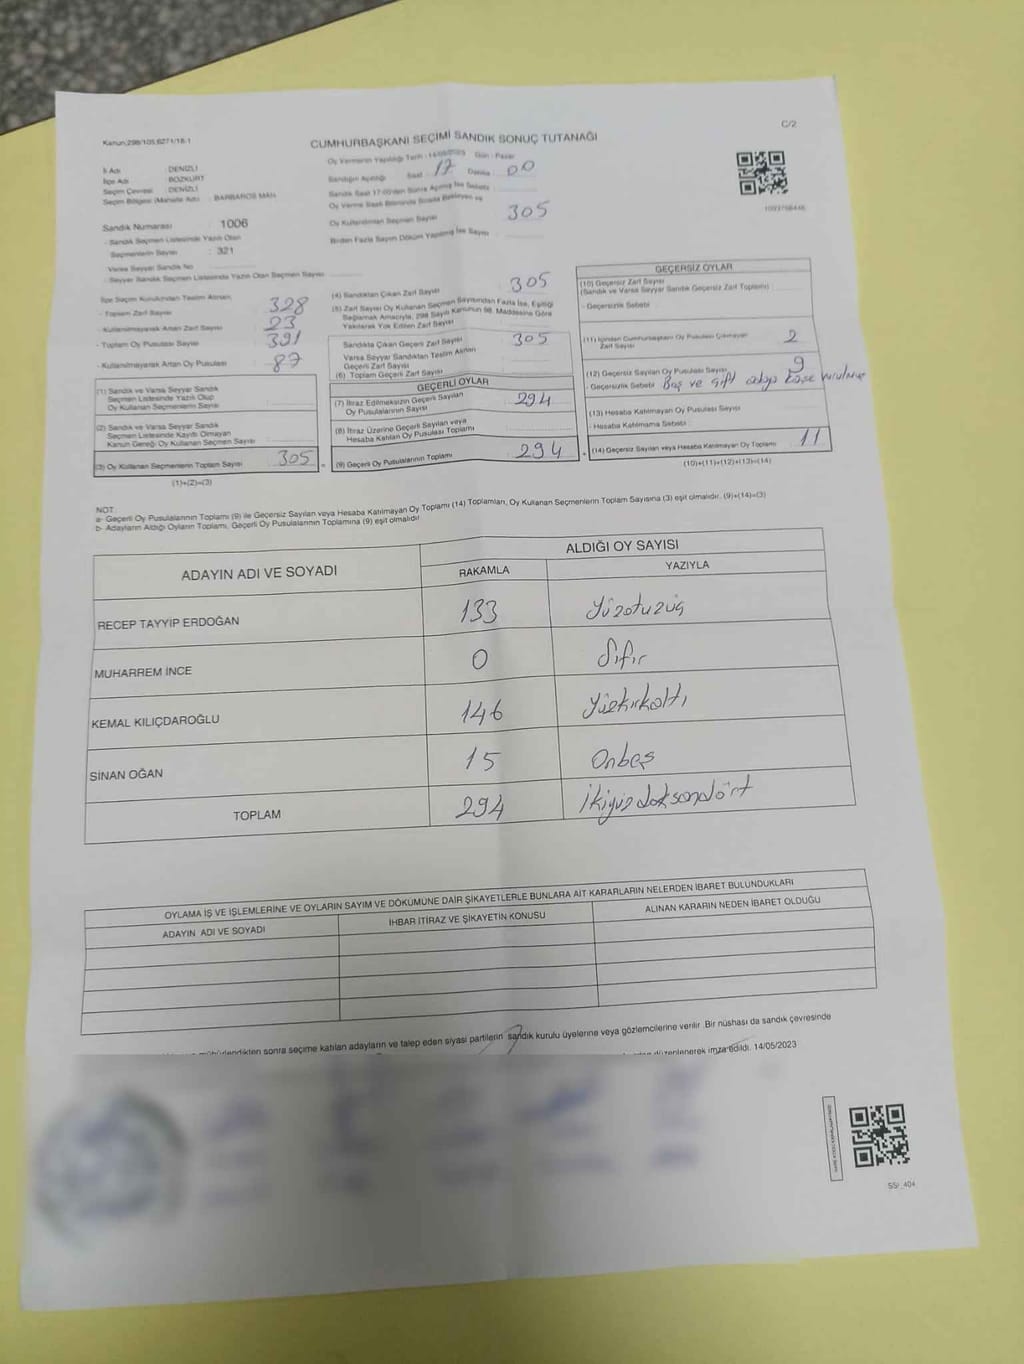 C/2
Kanun:298/105,6271/18-1
CUMHURBAŞKANI SEÇİMİ SANDIK SONUÇ TUTANAĞI
İl Adı : DENİZLİ
İlçe Adı : BOZKURT
Seçim Çevresi : DENİZLİ
Seçim Bölgesi (Mahalle Adı) : BARBAROS MAH.
Oy Vermenin Yapıldığı Tarih : 14/05/2023 Gün : Pazar
Sandığın Açıldığı Saat 17 Dakika 00
Oy Kullanılan Seçmen Sayısı 305
Birden Fazla Sayım Döküm Yapılmış İse Sayısı
Sandık Numarası : 1006
- Sandık Seçmen Listesinde Yazılı Olan
Seçmenlerin Sayısı : 321
Varsa Seyyar Sandık No
- Seyyar Sandık Seçmen Listesinde Yazılı Olan Seçmen Sayısı
İlçe Seçim Kurulundan Teslim Alınan;
- Toplam Zarf Sayısı 328
- Kullanılmayarak Artan Zarf Sayısı 23
- Toplam Oy Pusulası Sayısı 391
- Kullanılmayarak Artan Oy Pusulası 87
(1) Sandık ve Varsa Seyyar Sandık
Seçmen Listesinde Yazılı Olup
Oy Kullanan Seçmenlerin Sayısı
(2) Sandık ve Varsa Seyyar Sandık
Seçmen Listesinde Kayıtlı Olmayan
Kanun Gereği Oy Kullanan Seçmen Sayısı
(3) Oy Kullanan Seçmenlerin Toplam Sayısı 305
(1)+(2)=(3)
(4) Sandıktan Çıkan Zarf Sayısı 305
(5) Zarf Sayısı Oy Kullanan Seçmen Sayısından Fazla İse, Eşitliği
Sağlamak Amacıyla, 298 Sayılı Kanunun 98. Maddesine Göre
Yakılarak Yok Edilen Zarf Sayısı
Sandıkta Çıkan Geçerli Zarf Sayısı 305
Varsa Seyyar Sandıktan Teslim Alınan
Geçerli Zarf Sayısı
(6) Toplam Geçerli Zarf Sayısı
GEÇERLİ OYLAR
(7) İtiraz Edilmeksizin Geçerli Sayılan
Oy Pusulalarının Sayısı 294
(8) İtiraz Üzerine Geçerli Sayılan veya
Hesaba Katılan Oy Pusulası Toplamı
(9) Geçerli Oy Pusulalarının Toplamı 294
GEÇERSİZ OYLAR
(10) Geçersiz Zarf Sayısı
(Sandık ve Varsa Seyyar Sandık Geçersiz Zarf Toplamı)
- Geçersizlik Sebebi
(11) İçinden Cumhurbaşkanı Oy Pusulası Çıkmayan
Zarf Sayısı 2
(12) Geçersiz Sayılan Oy Pusulası Sayısı 9
- Geçersizlik Sebebi Boş ve çift
(13) Hesaba Katılmayan Oy Pusulası Sayısı
- Hesaba Katılmama Sebebi
(14) Geçersiz Sayılan veya Hesaba Katılmayan Oy Toplamı 11
(10)+(11)+(12)+(13)=(14)
NOT:
a- Geçerli Oy Pusulalarının Toplamı (9) ile Geçersiz Sayılan veya Hesaba Katılmayan Oy Toplamı (14) Toplamları, Oy Kullanan Seçmenlerin Toplam Sayısına (3) eşit olmalıdır. (9)+(14)=(3)
b- Adayların Aldığı Oyların Toplamı, Geçerli Oy Pusulalarının Toplamına (9) eşit olmalıdır
ADAYIN ADI VE SOYADI
ALDIĞI OY SAYISI
RAKAMLA YAZIYLA
RECEP TAYYİP ERDOĞAN 133 Yüzotuzüç
MUHARREM İNCE 0 Sıfır
KEMAL KILIÇDAROĞLU 146 Yüzkırkaltı
SİNAN OĞAN 15 Onbeş
TOPLAM 294 İkiyüzdoksandört
OYLAMA İŞ VE İŞLEMLERİNE VE OYLARIN SAYIM VE DÖKÜMÜNE DAİR ŞİKAYETLERLE BUNLARA AİT KARARLARIN NELERDEN İBARET BULUNDUKLARI
ADAYIN ADI VE SOYADI İHBAR İTİRAZ VE ŞİKAYETİN KONUSU ALINAN KARARIN NEDEN İBARET OLDUĞU
sonra seçime katılan adayların ve talep eden siyasi partilerin sandık kurulu üyelerine veya gözlemcilerine verilir. Bir nüshası da sandık çevresinde
düzenlenerek imza edildi. 14/05/2023